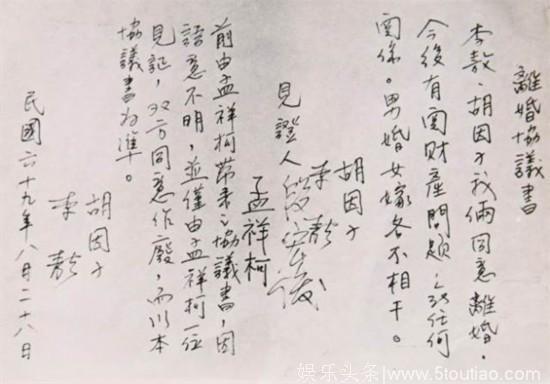 離婚協議書
李敖、胡因子我倆同意離婚,
今後有關財產問題,任何
關係。男婚女嫁各不相干。
胡因子
李敖
見證人 段宏俊
孟祥柯
前由孟祥柯帶来之協議書,因
語意不明,並僅由孟祥柯一位
見証,双方同意作廢,而以本
協議書為準。
胡因子
李敖
民國六十九年八月二十八日
娱乐头条/www.5toutiao.com